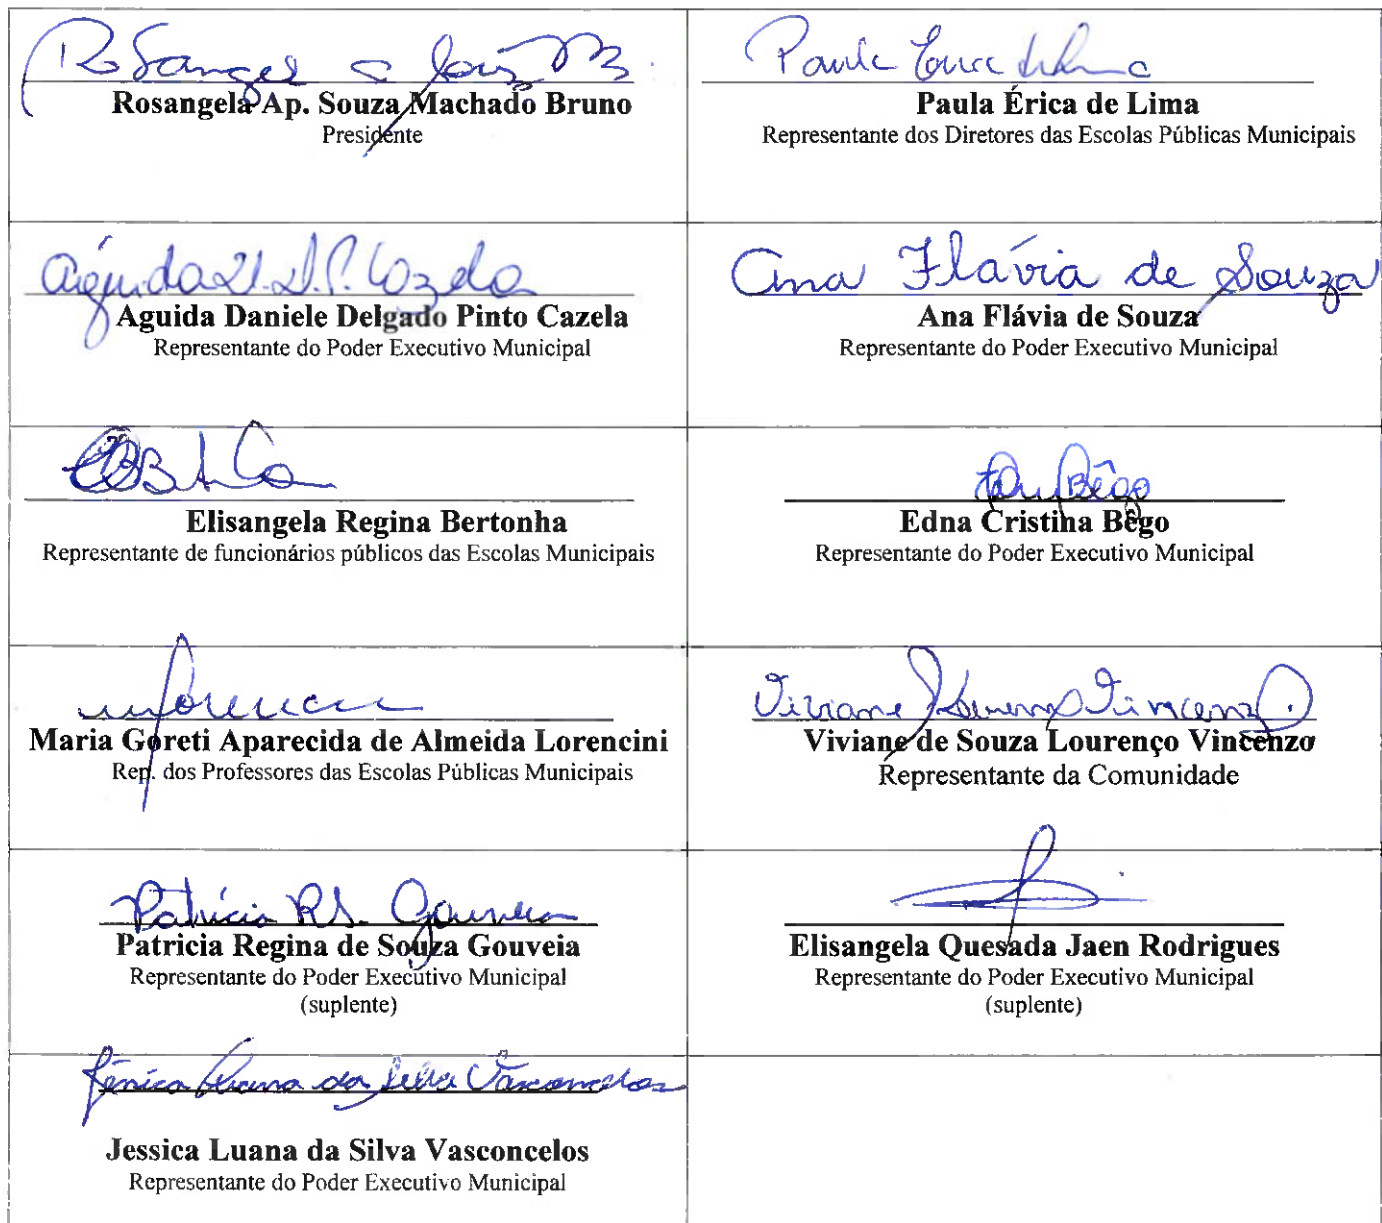 Rosangela Ap. Souza Machado Bruno
Presidente
Paula Érica de Lima
Representante dos Diretores das Escolas Públicas Municipais
Aguida Daniele Delgado Pinto Cazela
Representante do Poder Executivo Municipal
Ana Flávia de Souza
Ana Flávia de Souza
Representante do Poder Executivo Municipal
Elisangela Regina Bertonha
Representante de funcionários públicos das Escolas Municipais
Bêgo
Edna Cristina Bêgo
Representante do Poder Executivo Municipal
Maria Goreti Aparecida de Almeida Lorencini
Rep. dos Professores das Escolas Públicas Municipais
Viviane de Souza Lourenço Vincenzo
Representante da Comunidade
Patrícia R.S. Gouveia
Patricia Regina de Souza Gouveia
Representante do Poder Executivo Municipal
(suplente)
Elisangela Quesada Jaen Rodrigues
Representante do Poder Executivo Municipal
(suplente)
Jessica Luana da Silva Vasconcelos
Representante do Poder Executivo Municipal